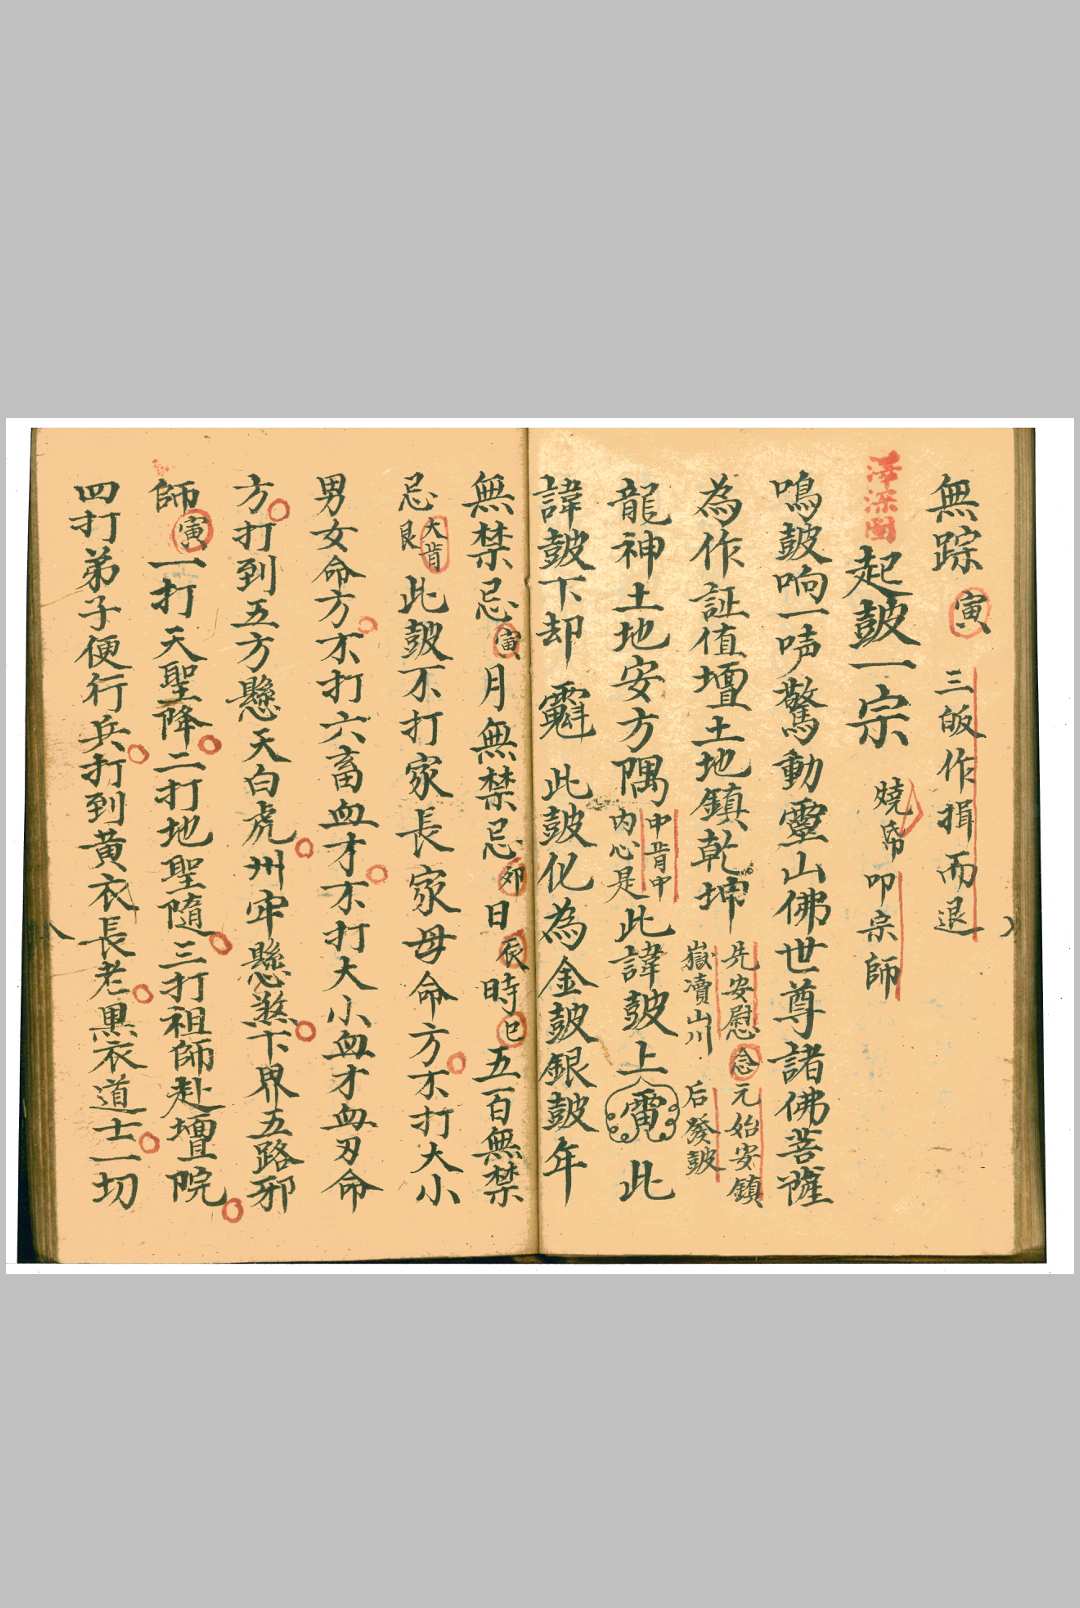 無踪 寅 三皈作揖而退
起皷一宗 燒帋 叩宗師
鳴皷响一声驚動靈山佛世尊諸佛菩薩
為作証值壇土地鎮乾坤 先安慰 念 元始安鎮
嶽瀆山川 后發皷
龍神土地安方隅 中肯中
内心是 此諱皷上 此
諱皷下却 此皷化為金皷銀皷年
無禁忌 寅 月無禁忌 卯 日 辰 時 巳 五百無禁
忌 大肯
艮 此皷不打家長家母命方不打大小
男女命方不打六畜血才不打大小血才血刃命
方打到五方懸天白虎州牢懸煞下界五路邪
師 寅 一打天聖降二打地聖隨三打祖師赴壇院
四打弟子便行兵打到黃衣長老黑衣道士一切